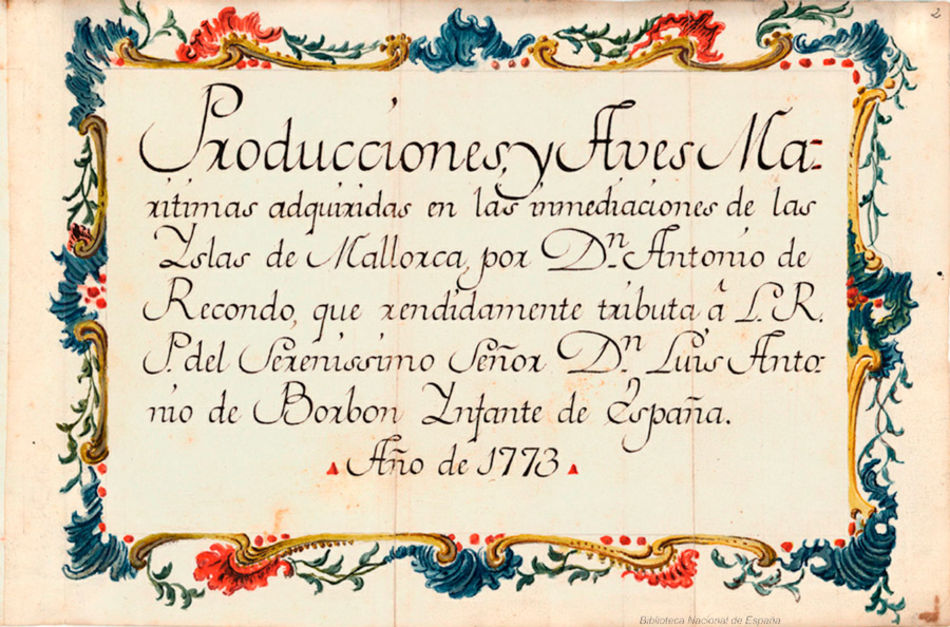 2
Producciones, y Aves Ma=
ritimas adquiridas en las inmediaciones de las
Yslas de Mallorca, por Dn. Antonio de
Recondo, que rendidamente tributa â L. R.
P. del Serenissimo Señor Dn. Luis Anto:
nio de Borbon Ynfante de España.
Año de 1773
Biblioteca Nacional de España